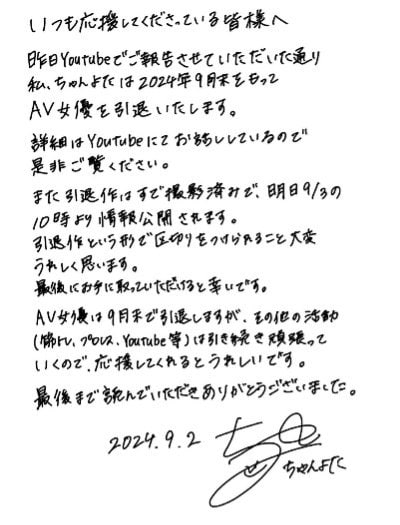 いつも応援してくださっている皆様へ
昨日Youtubeでご報告させていただいた通り
私、ちゃんよたは2024年9月末をもって
AV女優を引退いたします。
詳細はYoutubeにてお話ししているので
是非ご覧ください。
また引退作はすで撮影済みで、明日9/3の
10時より情報公開されます。
引退作という形で区切りをつけられること大変
うれしく思います。
最後にお手に取っていただけると幸いです。
AV女優は9月末で引退しますが、その他の活動
(筋トレ、プロレス、Youtube等)は引き続き頑張って
いくので、応援してくれるとうれしいです。
最後まで読んでいただきありがとうございました。
2024.9.2
ちゃんよた